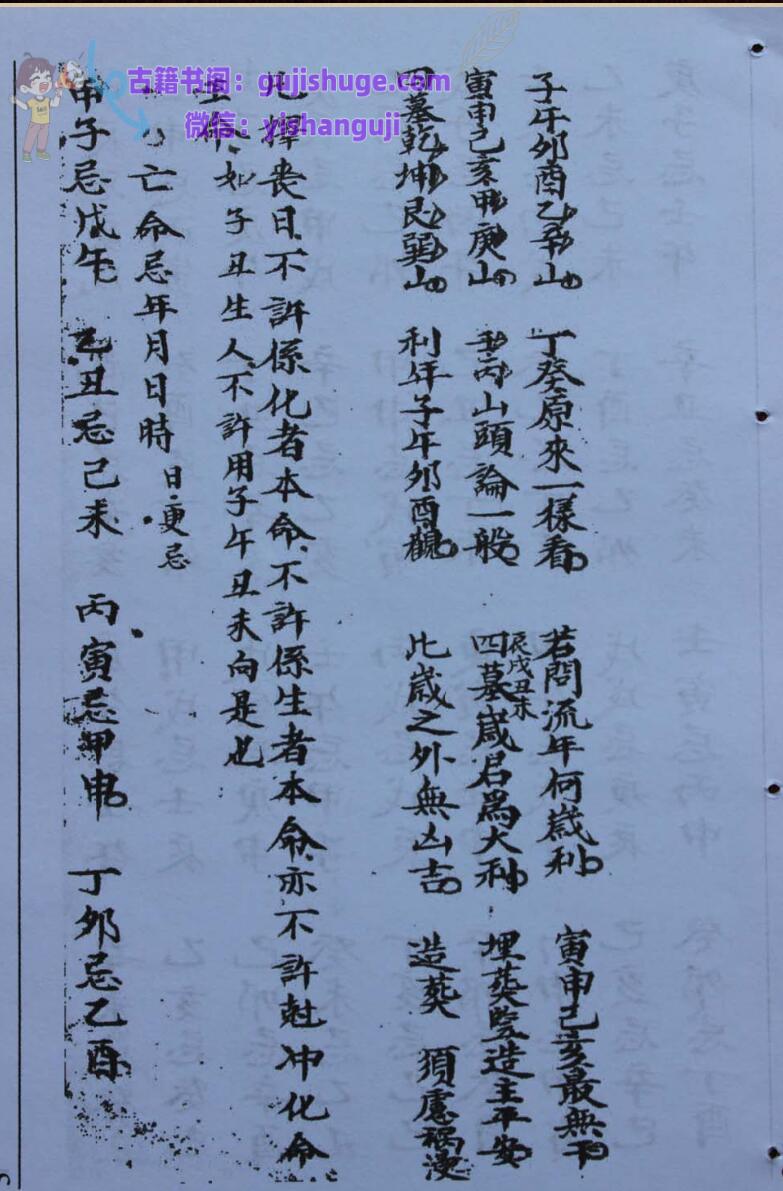 古籍书阁：gujishuge.com
微信：yishanguji
子午夘酉乙辛山 丁癸原來一樣看 若問流年何歲利 寅申巳亥最無干
寅申巳亥甲庚山 壬丙山頭論一般 四墓歲君為大利 埋葬竪造主平安
辰戌丑未
四墓乾坤艮巽山 利年子午夘酉觀 比歲之外無凶吉 造葬 須慮禍
凡擇喪日不許係化者本命不許係生者本命亦不許尅冲化命
生命如子丑生人不許用子午丑未向是也
亡命忌年月日時 日更忌
甲子忌戊午 乙丑忌己未 丙寅忌甲申 丁夘忌乙酉